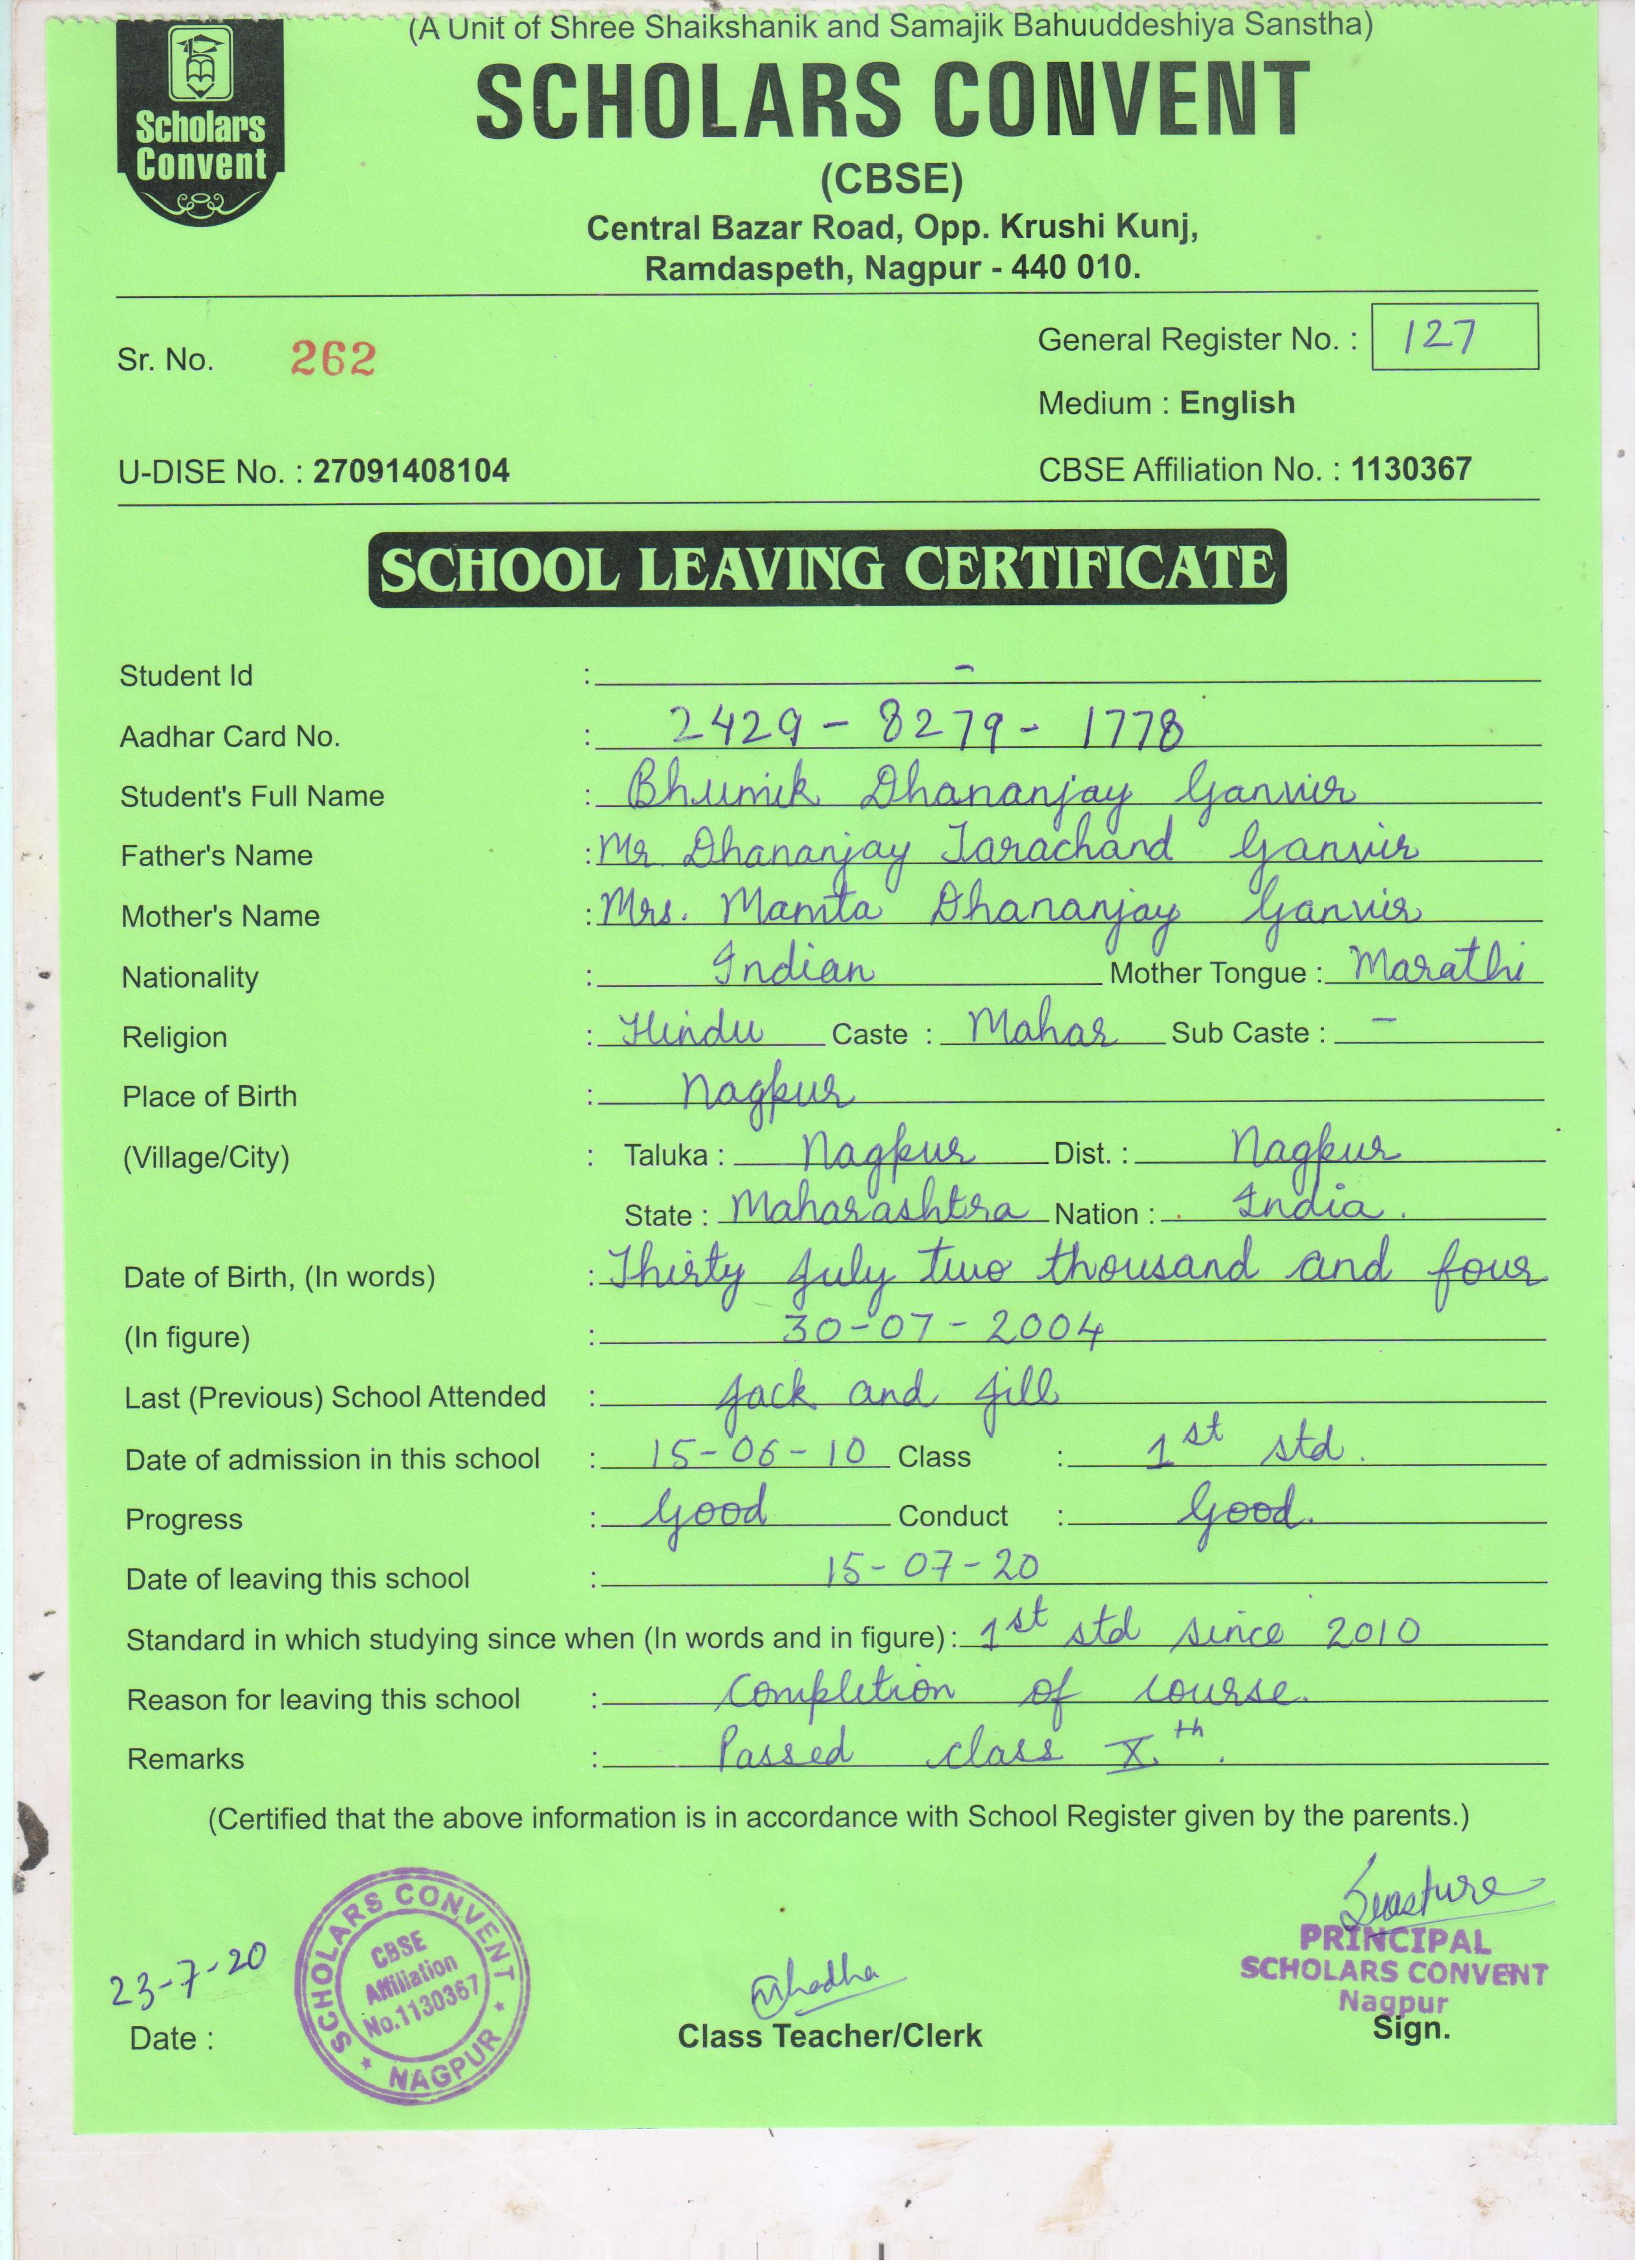 (A Unit of Shree Shaikshanik and Samajik Bahuuddeshiya Sanstha)
Scholars
Convent
SCHOLARS CONVENT
(CBSE)
Central Bazar Road, Opp. Krushi Kunj,
Ramdaspeth, Nagpur - 440 010.
Sr. No. 262
General Register No. : 127
Medium : English
U-DISE No. : 27091408104
CBSE Affiliation No. : 1130367
SCHOOL LEAVING CERTIFICATE
Student Id : -
Aadhar Card No. : 2429 - 8279 - 1778
Student's Full Name : Bhumik Dhananjay Ganvir
Father's Name : Mr Dhananjay Tarachand Ganvir
Mother's Name : Mrs. Mamta Dhananjay Ganvir
Nationality : Indian Mother Tongue : Marathi
Religion : Hindu Caste : Mahar Sub Caste : -
Place of Birth : Nagpur
(Village/City) : Taluka : Nagpur Dist. : Nagpur
State : Maharashtra Nation : India.
Date of Birth, (In words) : Thirty July two thousand and four
(In figure) : 30-07-2004
Last (Previous) School Attended : Jack and Jill
Date of admission in this school : 15-06-10 Class : 1st std.
Progress : Good Conduct : Good.
Date of leaving this school : 15-07-20
Standard in which studying since when (In words and in figure) : 1st std since 2010
Reason for leaving this school : Completion of course.
Remarks : Passed class X.th.
(Certified that the above information is in accordance with School Register given by the parents.)
23-7-20
Date :
SCHOLARS CONVENT
★ NAGPUR ★
CBSE
Affiliation
No.1130367
Class Teacher/Clerk
PRINCIPAL
SCHOLARS CONVENT
Nagpur
Sign.